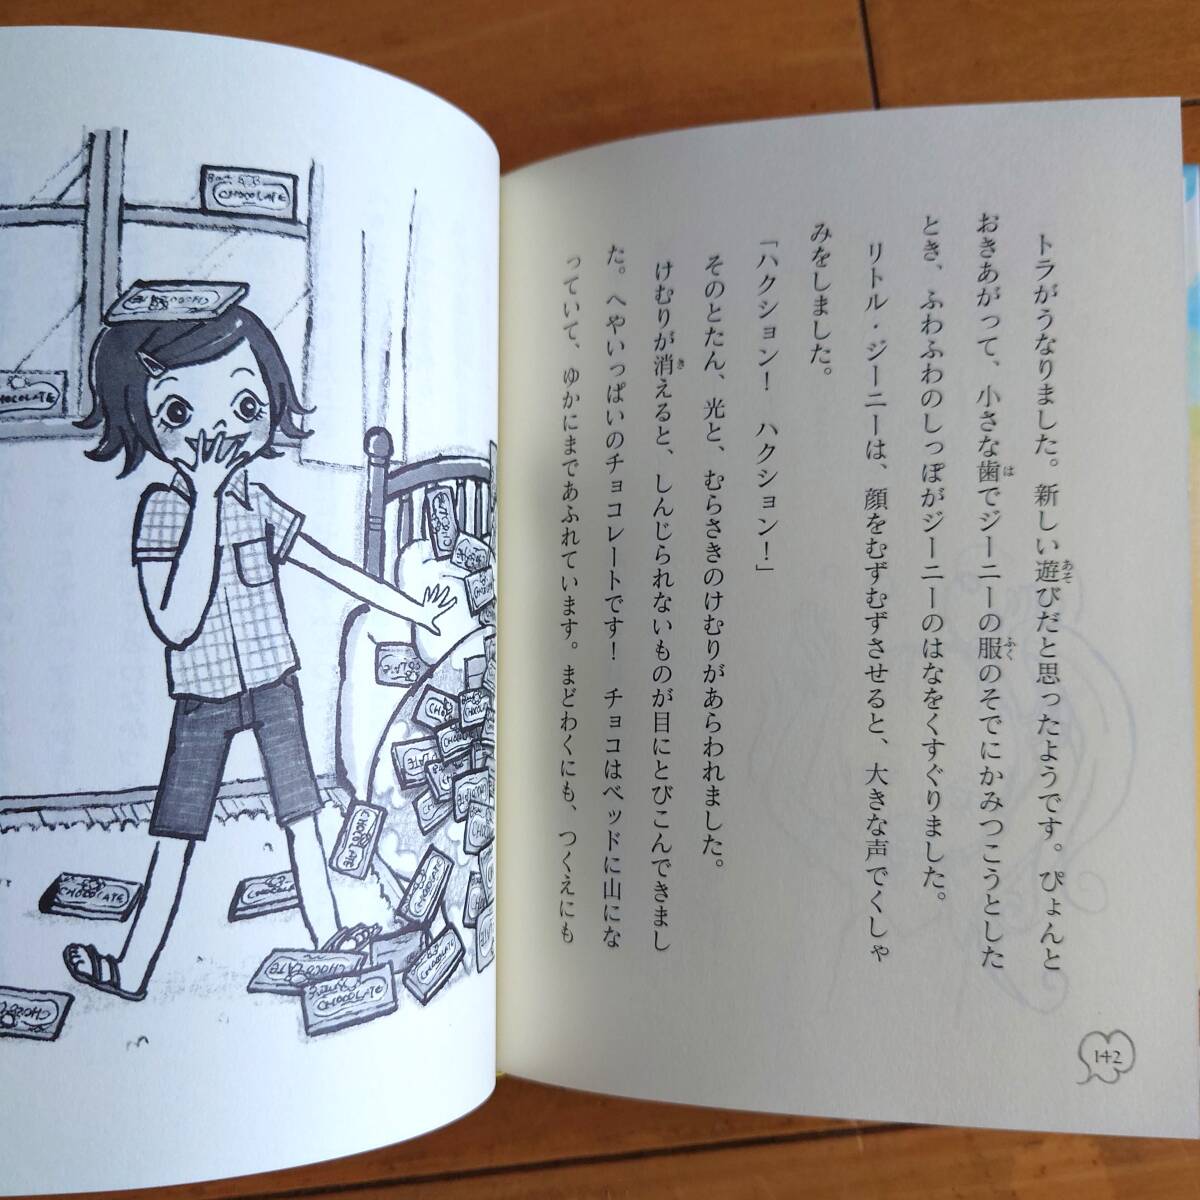 トラがうなりました。新しい遊びだと思ったようです。ぴょんと
おきあがって、小さな歯でジーニーの服のそでにかみつこうとした
とき、ふわふわのしっぽがジーニーのはなをくすぐりました。
リトル・ジーニーは、顔をむずむずさせると、大きな声でくしゃ
みをしました。
「ハクション！　ハクション！」
そのとたん、光と、むらさきのけむりがあらわれました。
けむりが消えると、しんじられないものが目にとびこんできまし
た。へやいっぱいのチョコレートです！　チョコはベッドに山にな
っていて、ゆかにまであふれています。まどわくにも、つくえにも
142
CHOCOLATE
CHOCOLATE
CHOCOLATE
CHOCOLATE
CHOCOLATE
CHOCOLATE